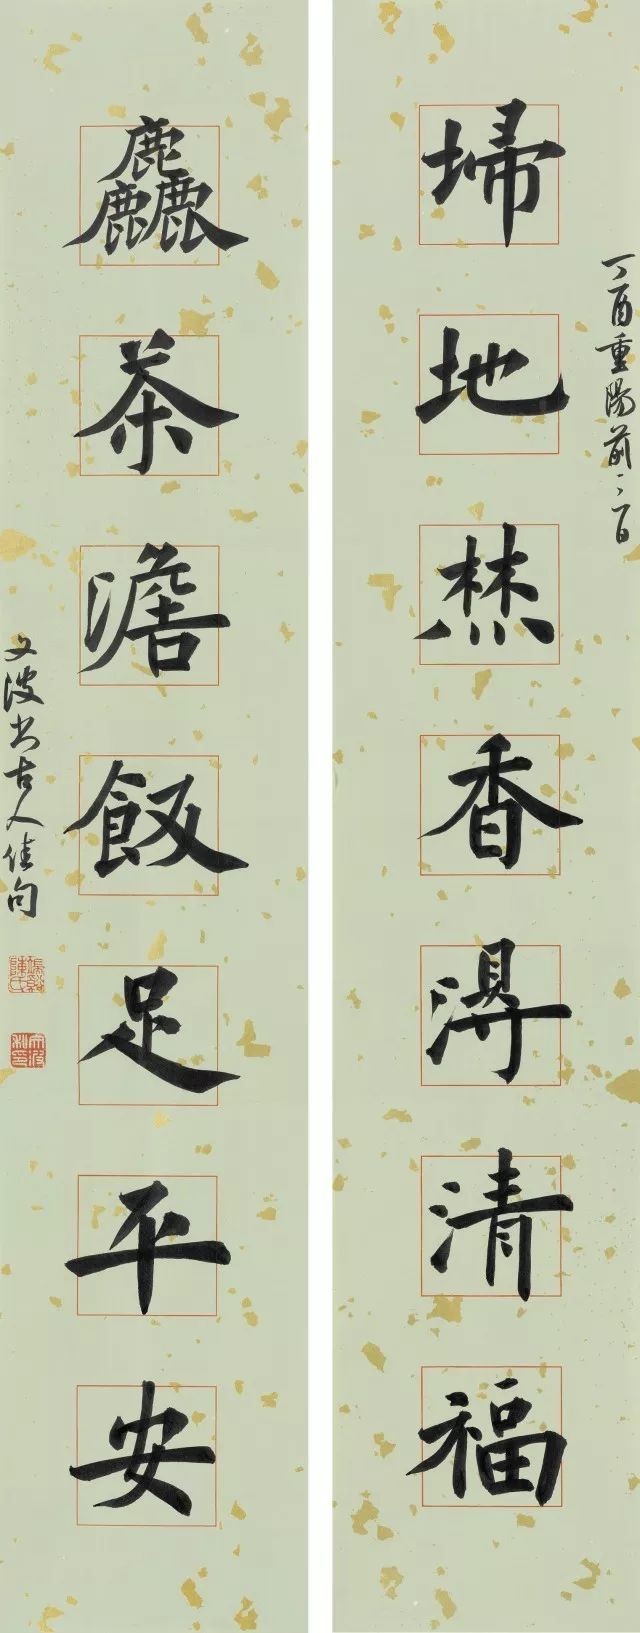 丁酉重陽前
埽地焚香淂清福
麤茶澹飯足平安
文波书古人佳句
陳氏